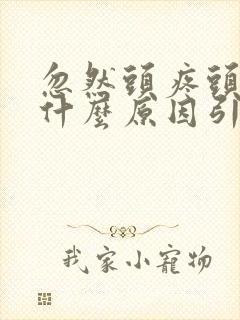 忽然頭疼頭
什麼原因引
我家小寵物